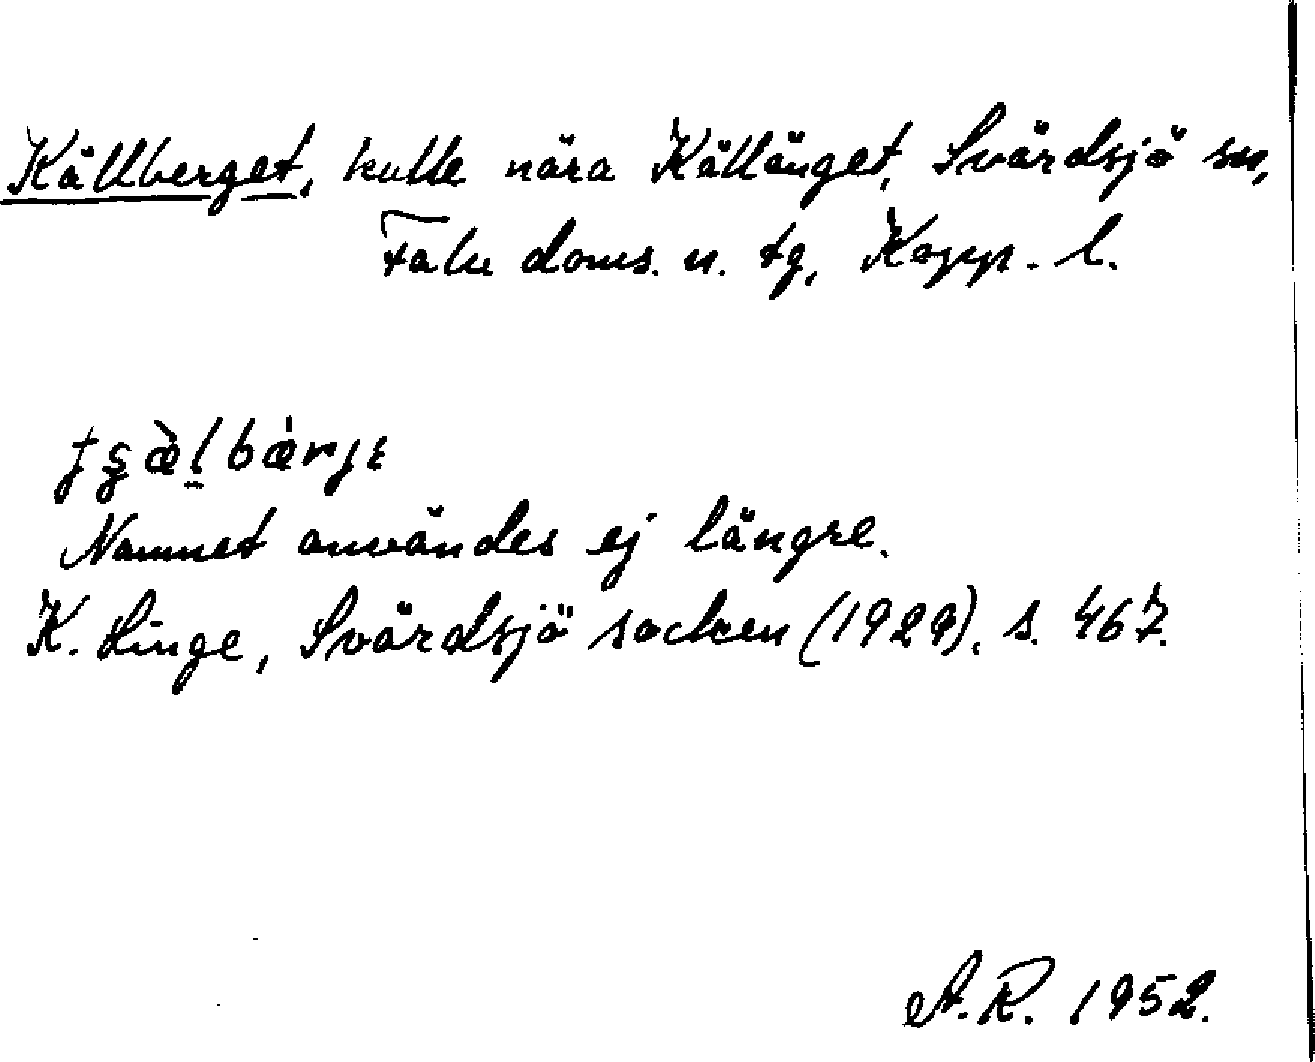 Källberget, kulle nära Källänget, Svärdsjö sn,
Falu doms. n. tg, Kopp. l.
Namnet användes ej längre.
K. Linge, Svärdsjö socken (1929), s. 467.
A. R. 1952.